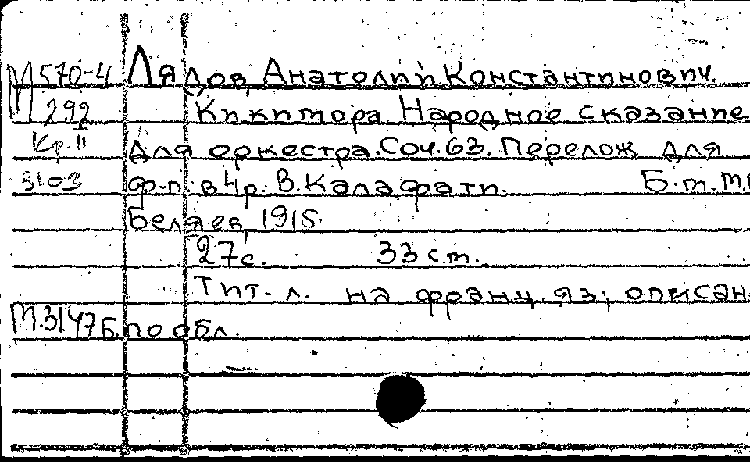 М 570-4 Лядов, Анатолий Константинович.
292 Кикимора. Народное сказание
Кр. II для оркестра. Соч. 63. Перелож. для
3103 ф.-п. в 4 р. В. Калафати. Б. м. М.
Беляев, 1915.
27 с. 33 см.
Тит. л. на франц. яз; описан
М.3147 Б. по обл.